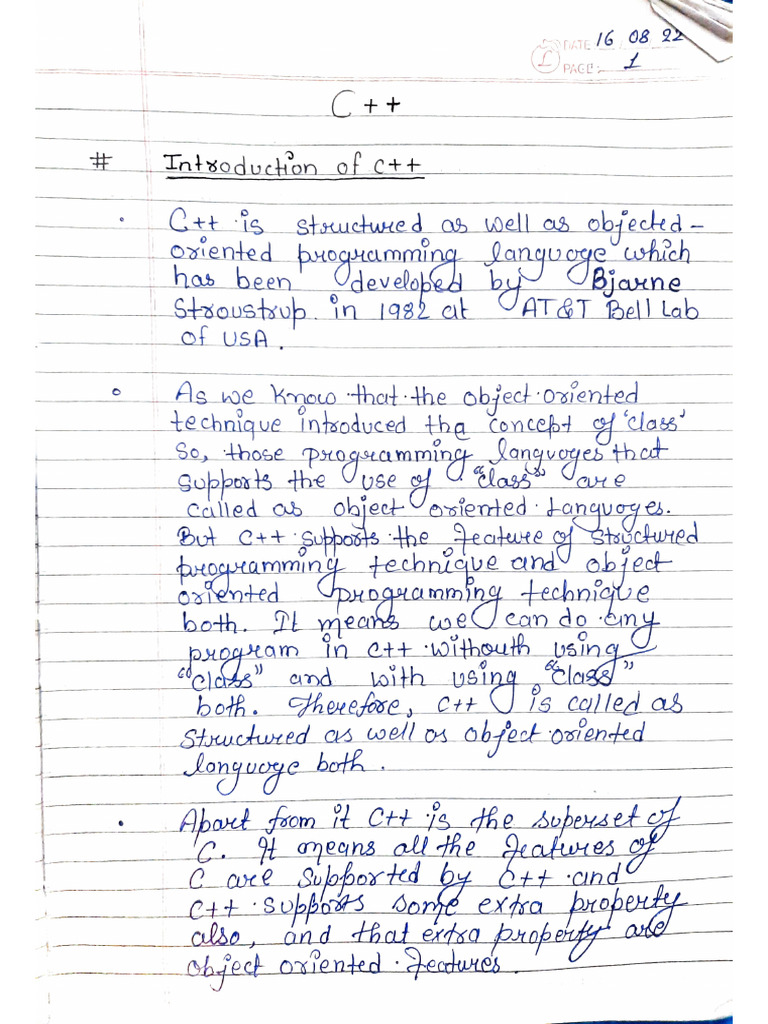 DATE 16 08 22
PAGE: 1
C++
# Introduction of C++
• C++ is structured as well as objected-
oriented programming language which
has been developed by Bjarne
Stroustrup in 1982 at AT&T Bell Lab
of USA.
• As we know that the object oriented
technique introduced the concept of 'class'
So, those programming languages that
supports the use of "class" are
called as object oriented Languages.
But C++ supports the feature of structured
programming technique and object
oriented programming technique
both. It means we can do any
program in C++ withouth using
"class" and with using "class"
both. Therefore, C++ is called as
structured as well as object oriented
language both.
• Apart from it C++ is the superset of
C. It means all the features of
C are supported by C++ and
C++ supports some extra property
also, and that extra property are
object oriented features.